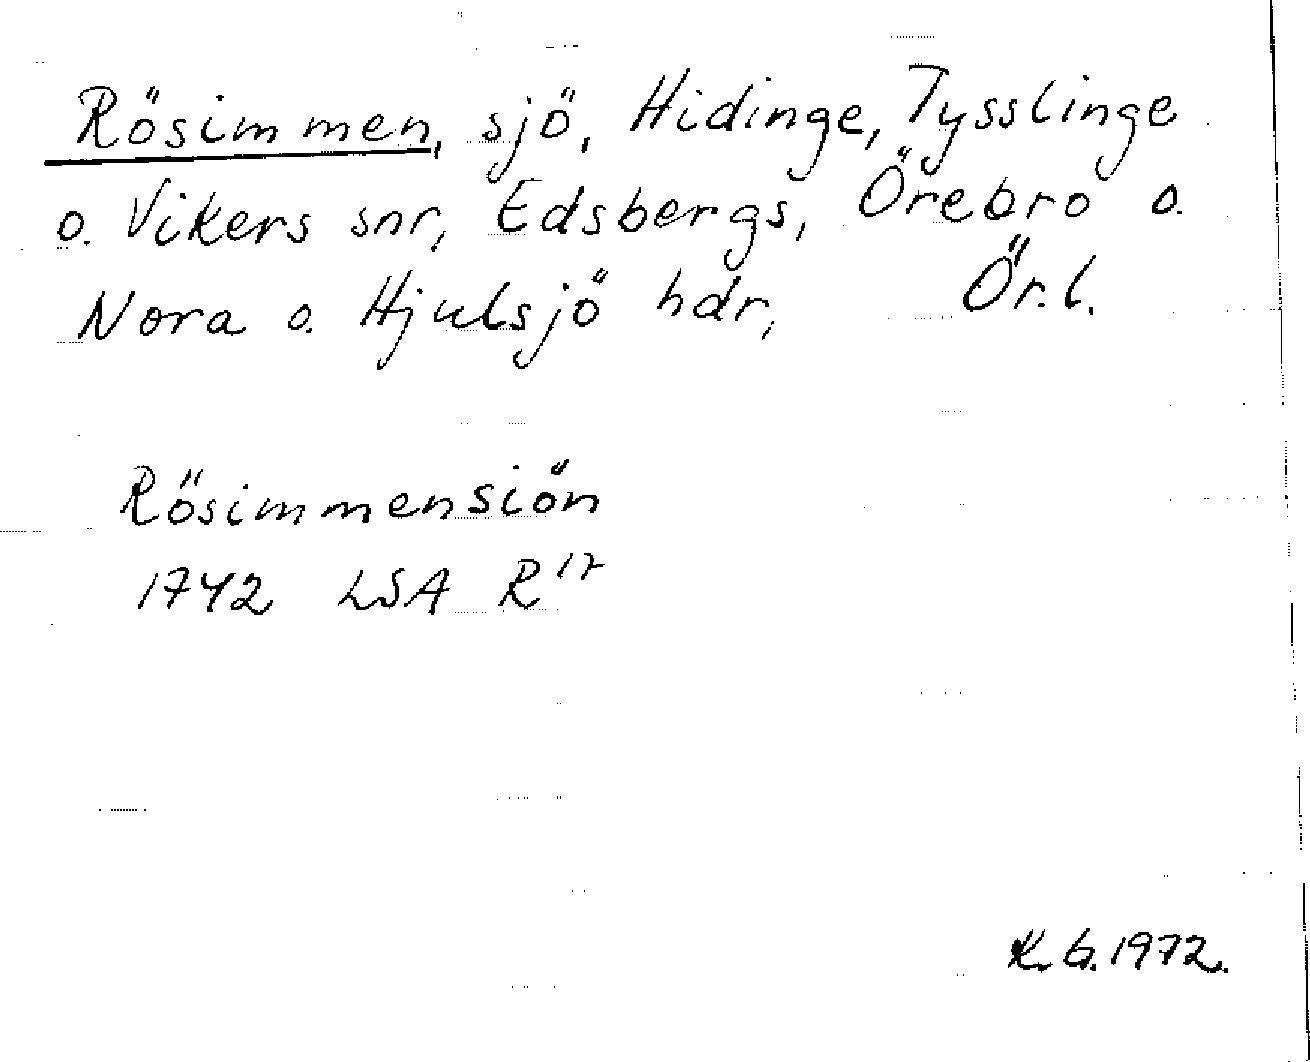 Rösimmen, sjö, Hidinge, Tysslinge
o. Vikers snr, Edsbergs, Örebro o.
Nora o. Hjulsjö hdr, Ör.l.
Rösimmensiön
1742 LSA R 17
K.G. 1972.